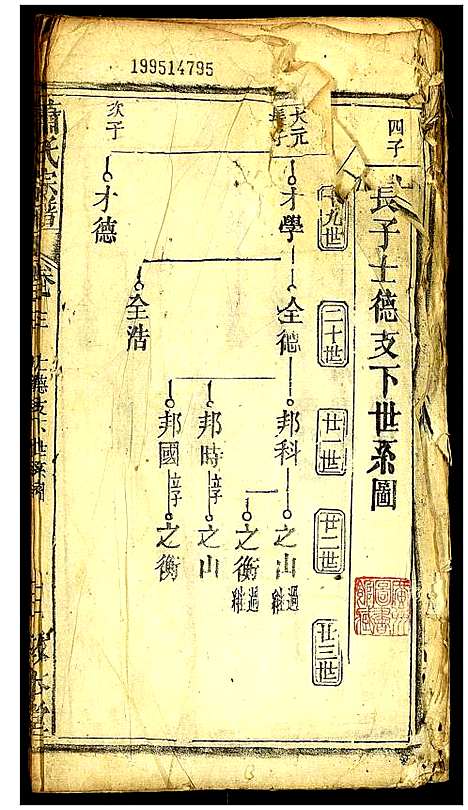 199514795
四子
長子士德支下世系圖
十九世
二十世
廿一世
廿二世
廿三世
大元
長子
才學
全德
邦科
之山 過繼
之衡 過繼
邦時 立子
之山
邦國 立子
之衡
全浩
次子
才德
蕭氏宗譜
卷之三
士德支下世系圖